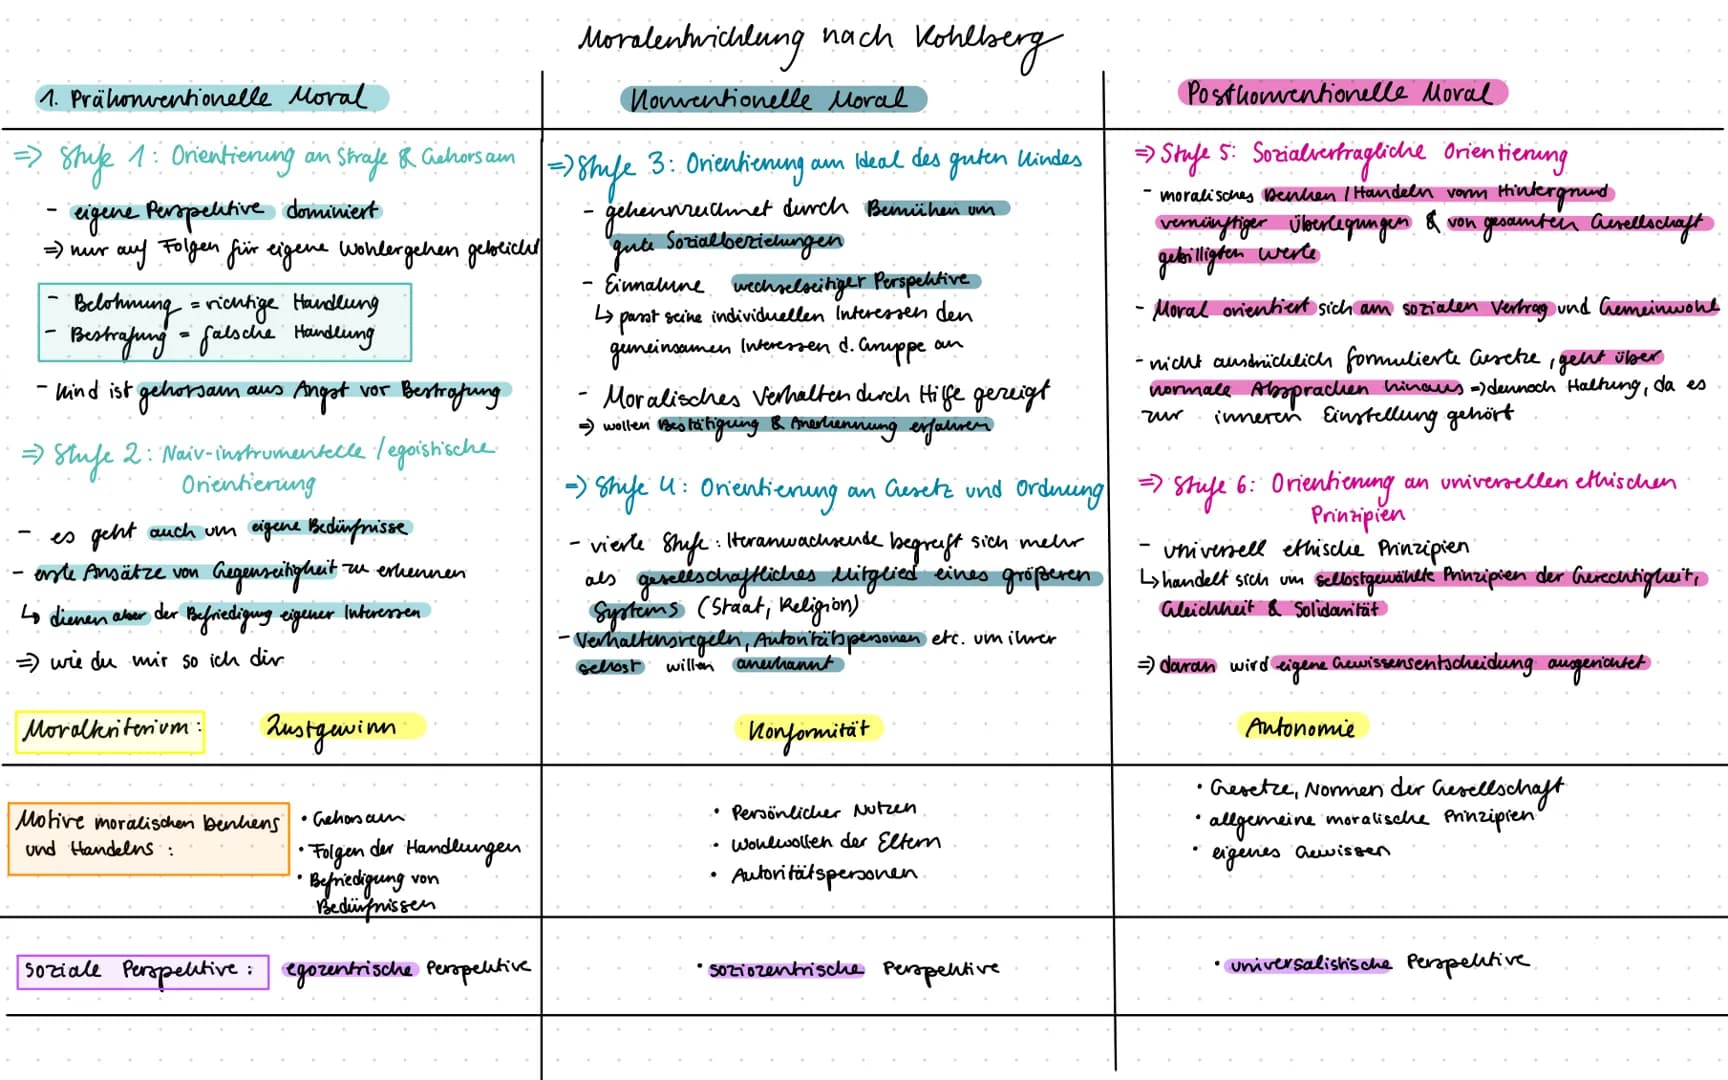 Moralentwicklung nach Kohlberg
1. Präkonventionelle Moral
=> Stufe 1: Orientierung an Strafe & Gehorsam
- eigene Perspektive dominiert
=> nur auf Folgen für eigene Wohlergehen geblickt
- Belohnung = richtige Handlung
- Bestrafung = falsche Handlung
- Kind ist gehorsam aus Angst vor Bestrafung
=> Stufe 2: Naiv-instrumentelle / egoistische
Orientierung
- es geht auch um eigene Bedürfnisse
- erste Ansätze von Gegenseitigkeit zu erkennen
↳ dienen aber der Befriedigung eigener Interessen
=> wie du mir so ich dir
Moralkriterium: Lustgewinn
Motive moralischen Denkens
und Handelns:
• Gehorsam
• Folgen der Handlungen
• Befriedigung von
Bedürfnissen
soziale Perspektive: egozentrische Perspektive
Konventionelle Moral
=> Stufe 3: Orientierung am Ideal des guten Kindes
- gekennzeichnet durch Bemühen um
gute Sozialbeziehungen
- Einnahme wechselseitiger Perspektive
↳ passt seine individuellen Interessen den
gemeinsamen Interessen d. Gruppe an
- Moralisches Verhalten durch Hilfe gezeigt
=> wollen Bestätigung & Anerkennung erfahren
=> Stufe 4: Orientierung an Gesetz und Ordnung
- vierte Stufe: Heranwachsende begreift sich mehr
als gesellschaftliches Mitglied eines größeren
Systems (Staat, Religion)
- Verhaltensregeln, Autoritätspersonen etc. um ihrer
selbst willen anerkannt
Konformität
• Persönlicher Nutzen
• Wohlwollen der Eltern
• Autoritätspersonen
• soziozentrische Perspektive
Postkonventionelle Moral
=> Stufe 5: Sozialvertragliche Orientierung
- moralisches Denken / Handeln vorm Hintergrund
vernünftiger Überlegungen & von gesamten Gesellschaft
gebilligten Werte
- Moral orientiert sich am sozialen Vertrag und Gemeinwohl
- nicht ausdrücklich formulierte Gesetze, geht über
normale Absprachen hinaus => dennoch Haltung, da es
zur inneren Einstellung gehört
=> Stufe 6: Orientierung an universellen ethischen
Prinzipien
- universell ethische Prinzipien
↳ handelt sich um selbstgewählte Prinzipien der Gerechtigkeit,
Gleichheit & Solidarität
=> daran wird eigene Gewissensentscheidung ausgerichtet
Autonomie
• Gesetze, Normen der Gesellschaft
• allgemeine moralische Prinzipien
• eigenes Gewissen
• universalistische Perspektive